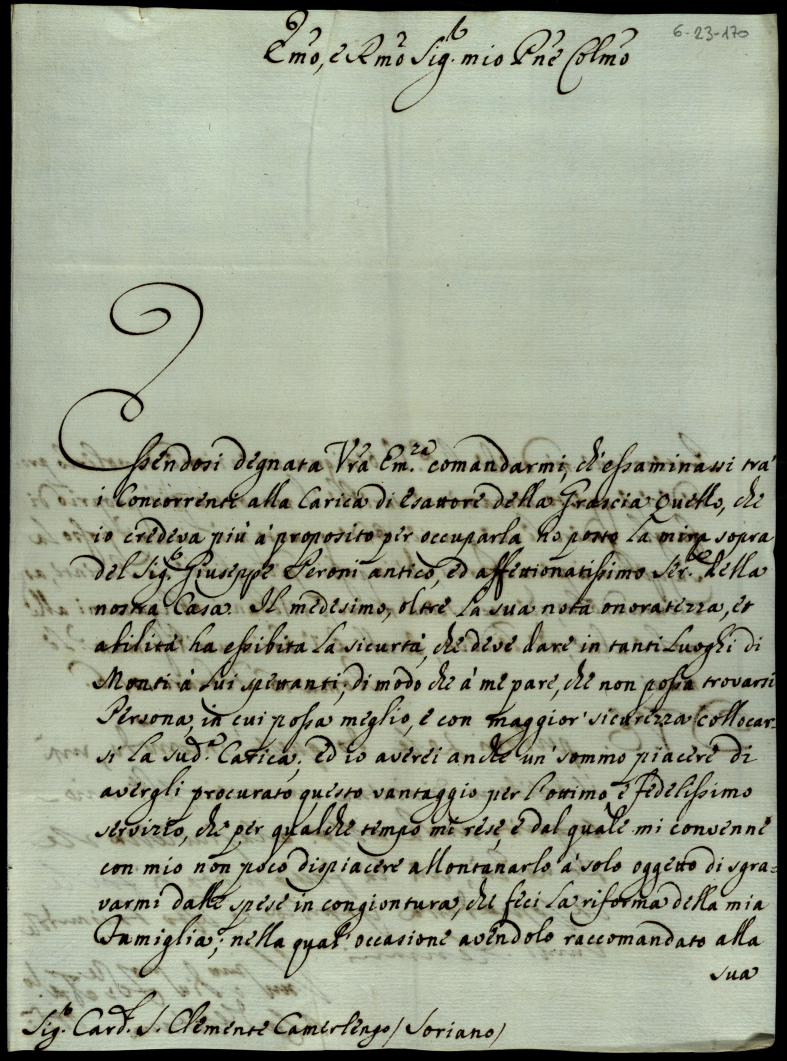 6-23-170
Em̃o, e Rm̃o Sig.r mio Pñe Colm̃o
Essendosi degnata Vrã Em.za comandarmi, ch'essaminassi trà
i Concorrenti alla Carica di Esattore della Grascia quello, che
io credeva più à proposito per occuparla hò posto la mira sopra
del Sig.r Giuseppe Peroni antico, ed affettionatissimo Ser.re della
nostra Casa. Il medesimo, oltre la sua nota onoratezza, et
abilità ha essibita la sicurtà, che deve dare in tanti Luoghi di
Monti à lui spettanti; di modo che à me pare, che non possa trovarsi
Persona, in cui possa meglio, e con maggior' sicurezza collocar-
si la sud.a Carica; ed io averei anche un' sommo piacere di
avergli procurato questo vantaggio per l'ottimo, e fedelissimo
servizio, che per qualche tempo mi rese, e dal quale mi convenne
con mio non poco dispiacere allontanarlo à solo oggetto di sgra=
varmi dalle spese in congiontura, che feci la riforma della mia
Famiglia; nella qual' occasione avendolo raccomandato alla
sua
Sig.r Card.l S. Clemente Camerlengo / Soriano /